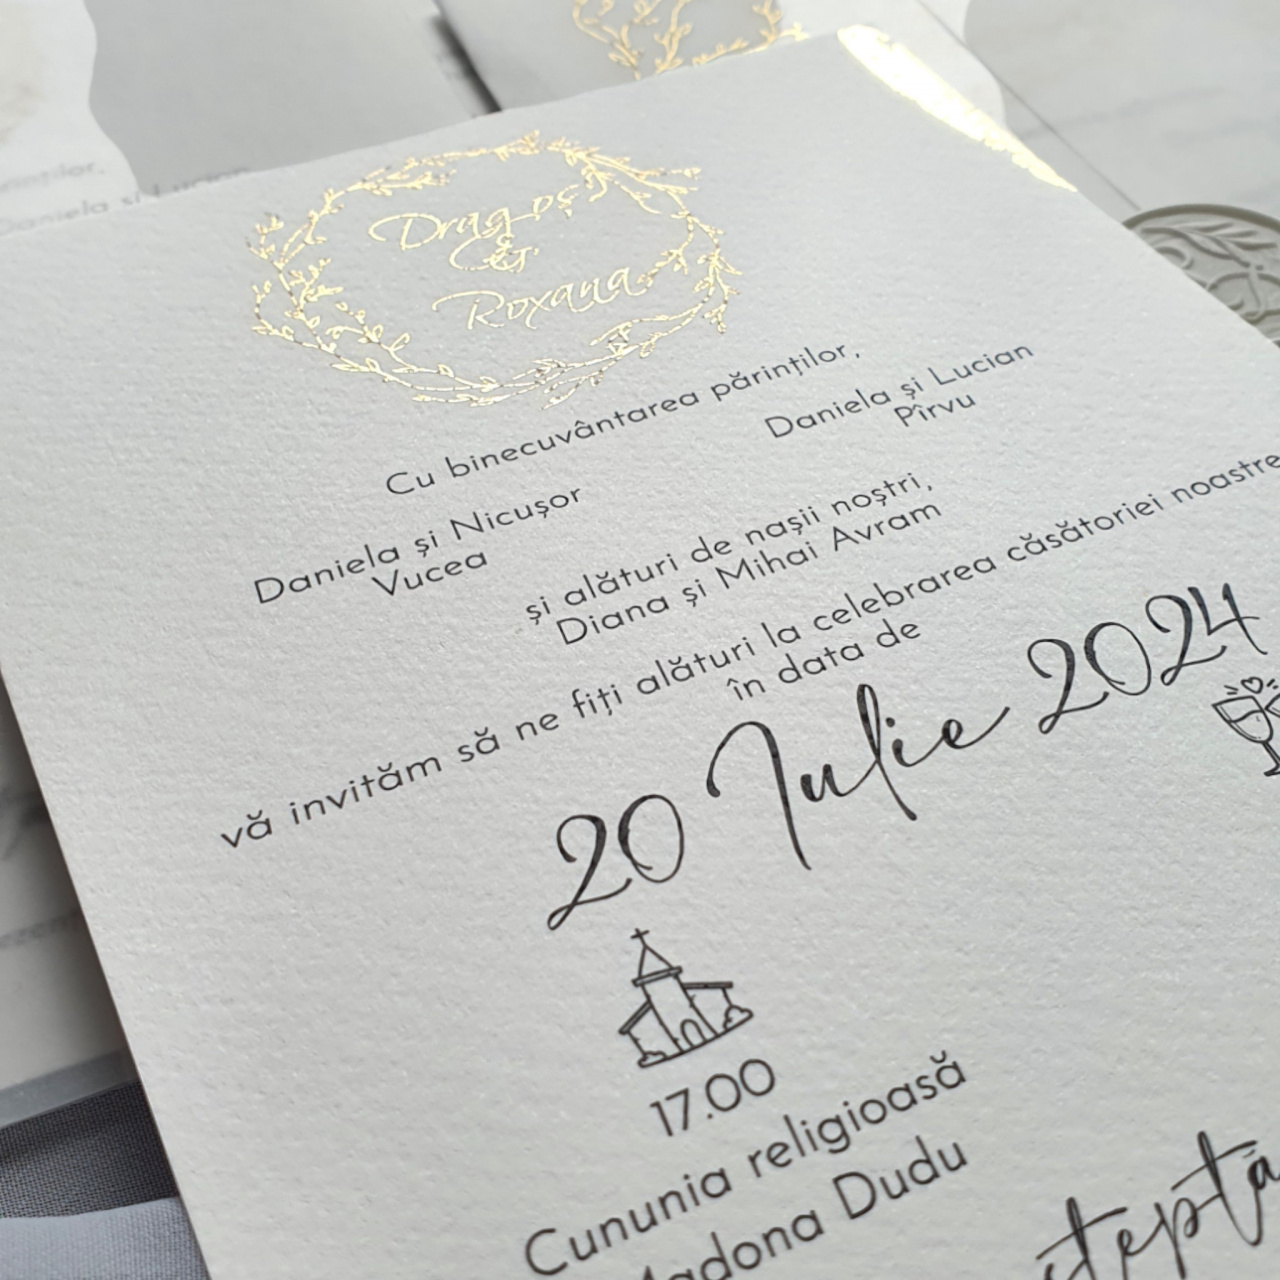 Dragoș
&
Roxana
Cu binecuvântarea părinților,
Daniela și Nicușor
Vucea
Daniela și Lucian
Pîrvu
și alături de nașii noștri,
Diana și Mihai Avram
vă invităm să ne fiți alături la celebrarea căsătoriei noastre
în data de
20 Iulie 2024
17.00
Cununia religioasă
Dudu